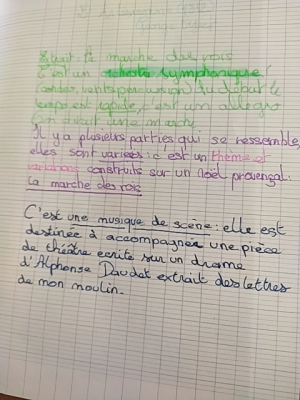 Extrait: la marche des rois
C'est un orchestre symphonique (
cordes, vents, percussion) au début le
tempo est rapide, c'est un allegro
On dirait une marche
Il y a plusieurs parties qui se ressemblent,
elles sont variées: c'est un thème et
variations construits sur un Noël provençal:
la marche des rois
C'est une musique de scène: elle est
destinée à accompagner une pièce
de théâtre ecrite sur un drame
d'Alphonse Daudet extrait des lettres
de mon moulin.